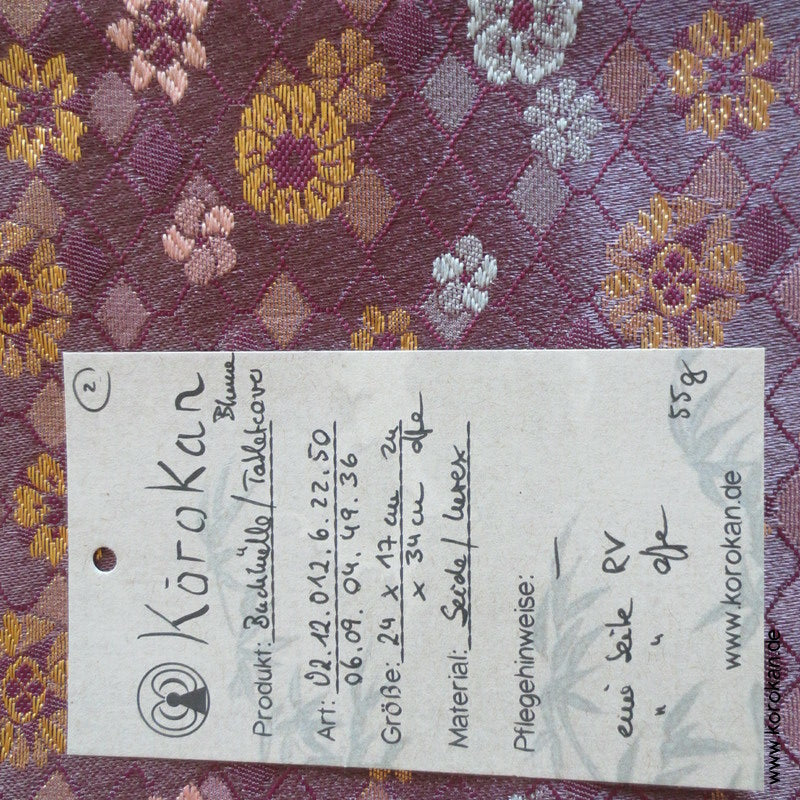 2
Kōrokan
Blume
Produkt: Buchhülle / Tabletcover
Art: 02.12.012.6.22.50
06.09.04.49.36
Größe: 24 x 17 cm zu
x 34 cm offe
Material: Seide / Lurex
Pflegehinweise: —
eine Seite RV
" " offe
55g
www.korokan.de
www.korokan.de